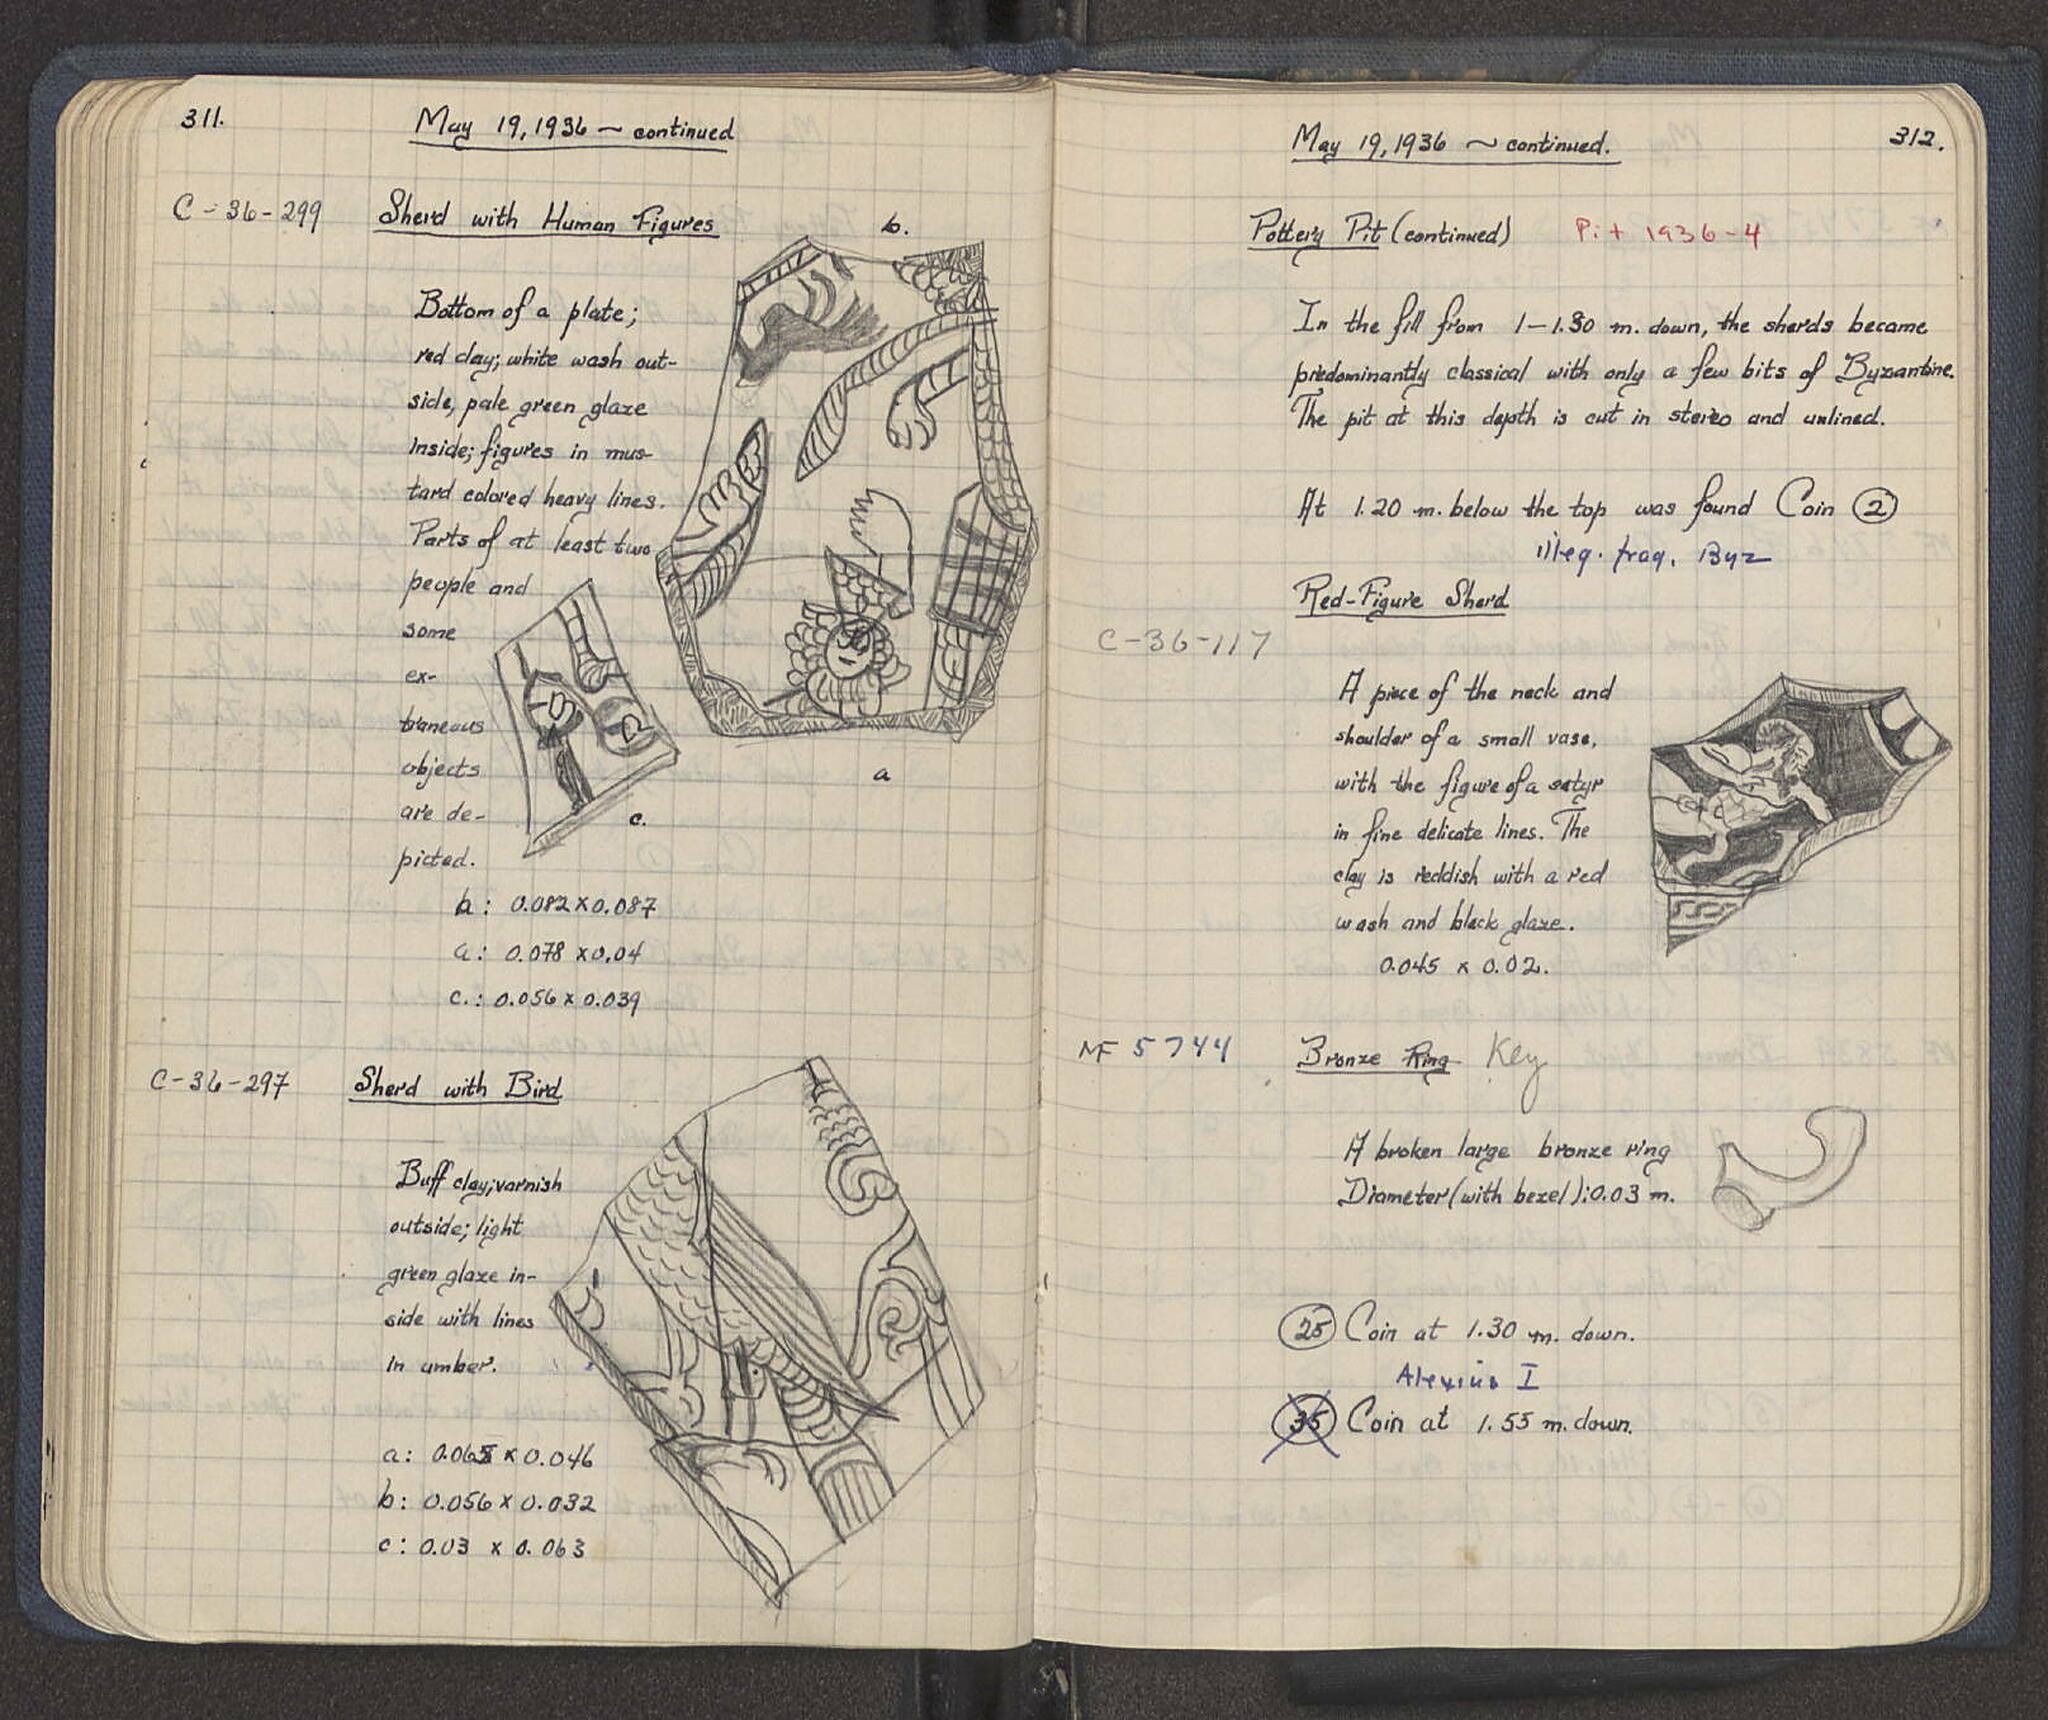 311.
May 19, 1936 ~ continued
C-36-299 Sherd with Human Figures
b.
Bottom of a plate;
red clay; white wash out-
side, pale green glaze
inside; figures in mus-
tard colored heavy lines.
Parts of at least two
people and
some
ex-
traneous
objects
are de-
picted.
a
c.
b: 0.082 x 0.087
a: 0.078 x 0.04
c.: 0.056 x 0.039
C-36-297 Sherd with Bird
Buff clay; varnish
outside; light
green glaze in-
side with lines
in umber.
a: 0.065 x 0.046
b: 0.056 x 0.032
c: 0.03 x 0.063
May 19, 1936 ~ continued. 312.
Pottery Pit (continued) Pit 1936-4
In the fill from 1-1.30 m. down, the sherds became
predominantly classical with only a few bits of Byzantine.
The pit at this depth is cut in stereo and unlined.
At 1.20 m. below the top was found Coin 2
illeg. frag. Byz
Red-Figure Sherd
C-36-117
A piece of the neck and
shoulder of a small vase,
with the figure of a satyr
in fine delicate lines. The
clay is reddish with a red
wash and black glaze.
0.045 x 0.02.
MF 5744 Bronze Ring Key
A broken large bronze ring
Diameter (with bezel): 0.03 m.
25 Coin at 1.30 m. down.
Alexius I
35 Coin at 1.55 m. down.